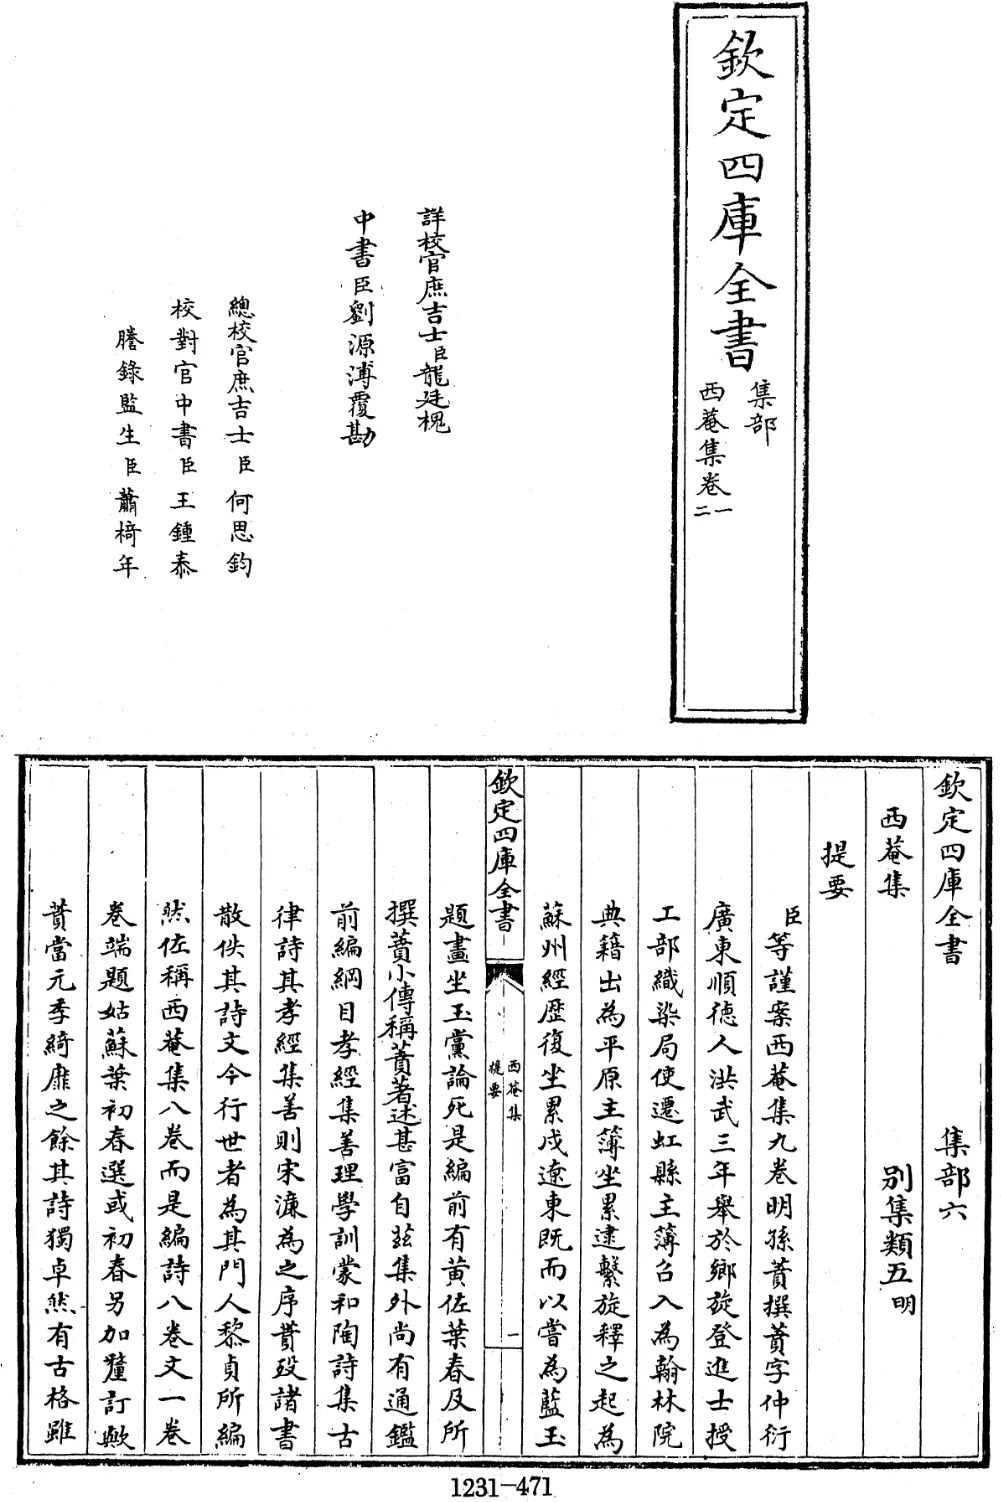 欽定四庫全書
集部
西菴集卷一
二
詳校官庶吉士臣龍廷槐
中書臣劉源溥覆勘
總校官庶吉士臣何思鈞
校對官中書臣王鍾泰
謄錄監生臣蕭椅年
欽定四庫全書 集部六
西菴集 別集類五明
提要
臣等謹案西菴集九卷明孫蕡撰蕡字仲衍
廣東順德人洪武三年舉於鄉旋登進士授
工部織染局使遷虹縣主薄召入為翰林院
典籍出為平原主薄坐累逮繫旋釋之起為
蘇州經歷復坐累戍遼東旣而以嘗為藍玉
欽定四庫全書
西菴集
提要
一
題畫坐玉黨論死是編前有黄佐葉春及所
撰蕡小傳稱蕡著述甚富自兹集外尚有通鑑
前編綱目孝經集善理學訓蒙和陶詩集古
律詩其孝經集善則宋濂為之序蕡殁諸書
散佚其詩文今行世者為其門人黎貞所編
然佐稱西菴集八卷而是編詩八卷文一卷
卷端題姑蘇葉初春選或初春另加釐訂歟
蕡當元季綺靡之餘其詩獨卓然有古格雖
1231-471